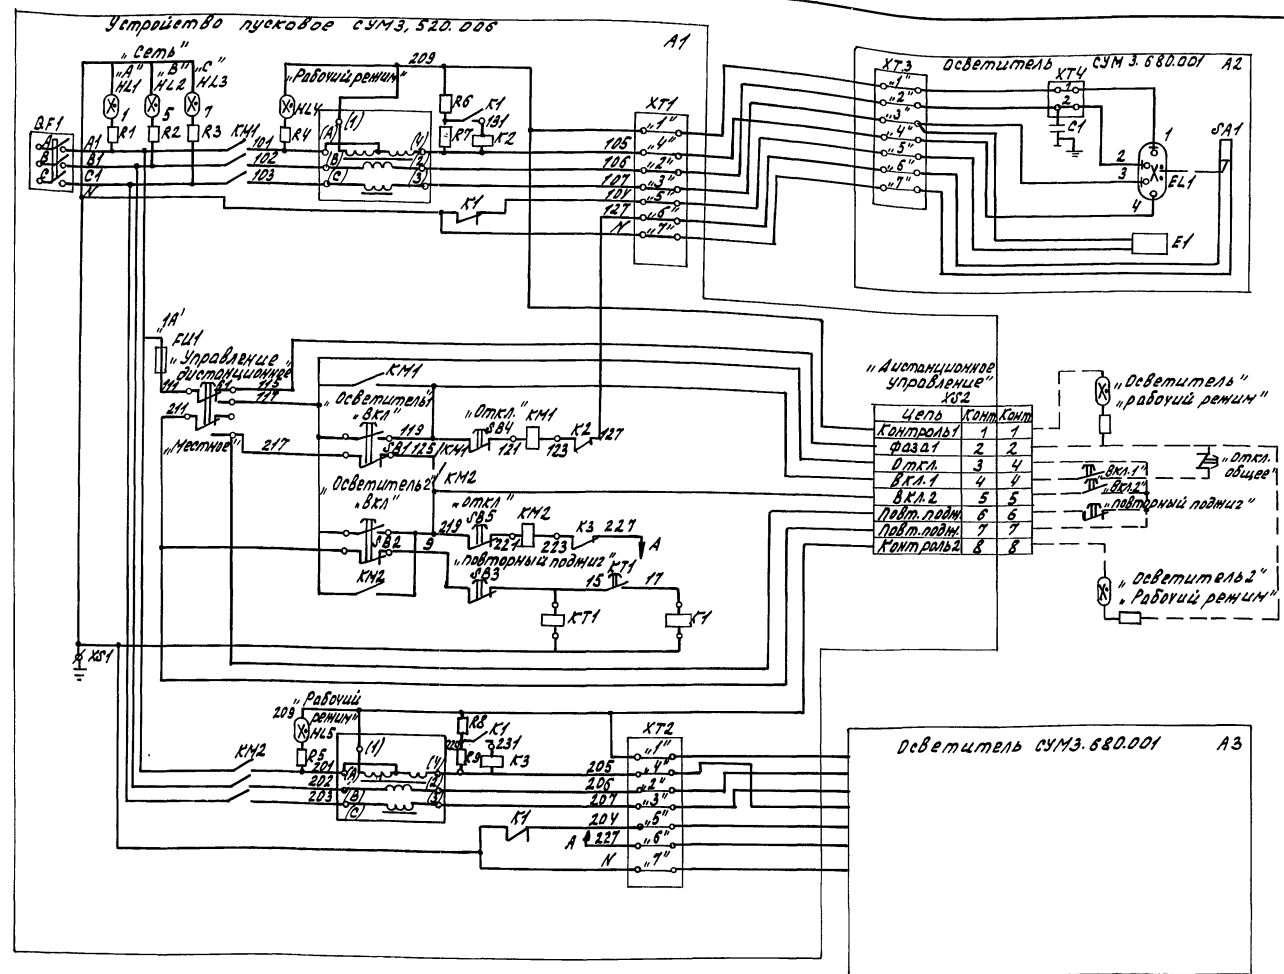 Устройство пусковое СУМ3.520.006
А1
„Сеть"
„А" „В" „С"
HL1 HL2 HL3
1 5 7
R1 R2 R3
QF1
А А1
В В1
С С1
N
КМ1
101
102
103
„Рабочий режим"
HL4
R4
209
(1)
(А) (4)
(В) (2)
(С) (3)
R6
R7
К1
131
К2
К1
ХТ1
105 „1"
106 „4"
107 „2"
104 „3"
127 „5"
N „6"
„7"
Осветитель СУМ 3.680.001 А2
ХТ3
„1"
„2"
„3"
„4"
„5"
„6"
„7"
ХТ4
1
2
С1
1
2
3
4
EL1
SA1
Е1
„1А"
FU1
„Управление
дистанционное"
111 S1 115
117
211
„Местное" 217
КМ1
„Осветитель1"
„Вкл"
119
SB1 125
КМ1
„Откл."
SB4
121
КМ1
123
К2
127
КМ2
„Осветитель2"
„Вкл"
SB2
9
КМ2
219
„Откл"
SB5
221
КМ2
223
К3
227
А
„Повторный поджиг"
SB3
15
КТ1
17
КТ1
К1
XS1
„Дистанционное
управление"
XS2
Цепь Конт Конт
Контроль1 1 1
Фаза1 2 2
Откл. 3 4
Вкл.1 4 4
Вкл.2 5 5
Повт.подж. 6 6
Повт.подж. 7 7
Контроль2 8 8
„Осветитель"
„рабочий режим"
„Откл.
общее"
„Вкл.1"
„Вкл2"
„повторный поджиг"
„Осветитель2"
„Рабочий режим"
„Рабочий
режим"
209
HL5
R5
КМ2
201
202
203
(1)
(А) (4)
(В) (2)
(С) (3)
R8
R9
К1
231
К3
К1
ХТ2
„1"
205 „4"
206 „2"
207 „3"
204 „5"
А 227 „6"
N „7"
Осветитель СУМ3.680.001 А3